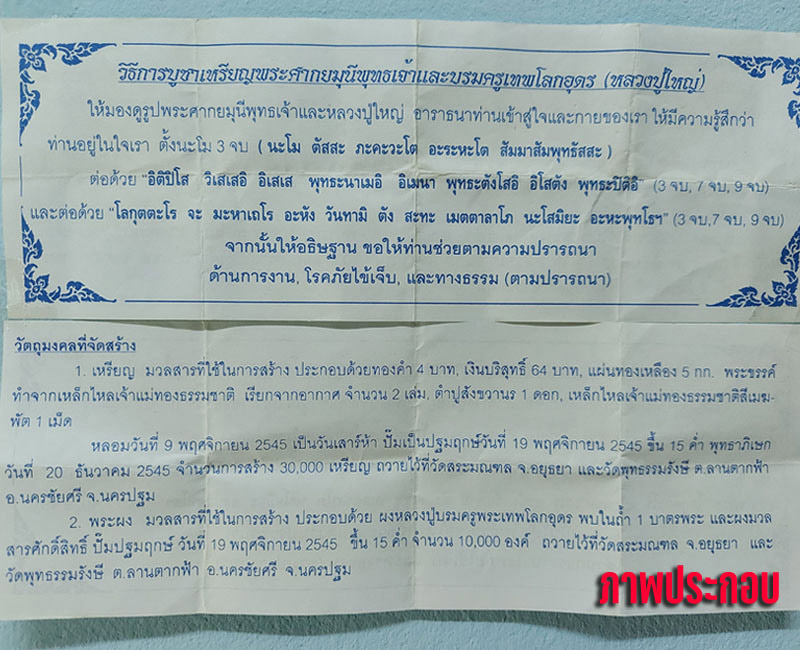 วิธีการบูชาเหรียญพระศากยมุนีพุทธเจ้าและบรมครูเทพโลกอุดร (หลวงปู่ใหญ่)
ให้มองดูรูปพระศากยมุนีพุทธเจ้าและหลวงปู่ใหญ่ อาราธนาท่านเข้าสู่ใจและกายของเรา ให้มีความรู้สึกว่า
ท่านอยู่ในใจเรา ตั้งนะโม 3 จบ ( นะโม ตัสสะ ภะคะวะโต อะระหะโต สัมมาสัมพุทธัสสะ )
ต่อด้วย "อิติปิโส วิเสเสอิ อิเสเส พุทธะนาเมอิ อิเมนา พุทธะตังโสอิ อิโสตัง พุทธะปิติอิ" (3 จบ, 7 จบ, 9 จบ)
และต่อด้วย "โลกุตตะโร จะ มะหาเถโร อะหัง วันทามิ ตัง สะทะ เมตตาลาโภ นะโสมิยะ อะหะพุทโธฯ" (3 จบ,7 จบ, 9 จบ)
จากนั้นให้อธิษฐาน ขอให้ท่านช่วยตามความปรารถนา
ด้านการงาน, โรคภัยไข้เจ็บ, และทางธรรม (ตามปรารถนา)
วัตถุมงคลที่จัดสร้าง
1. เหรียญ มวลสารที่ใช้ในการสร้าง ประกอบด้วยทองคำ 4 บาท, เงินบริสุทธิ์ 64 บาท, แผ่นทองเหลือง 5 กก. พระขรรค์
ทำจากเหล็กไหลเจ้าแม่ทองธรรมชาติ เรียกจากอากาศ จำนวน 2 เล่ม, ตำปูสังขวานร 1 ดอก, เหล็กไหลเจ้าแม่ทองธรรมชาติสีเมฆ-
พัต 1 เม็ด
หลอมวันที่ 9 พฤศจิกายน 2545 เป็นวันเสาร์ห้า ปั๊มเป็นปฐมฤกษ์วันที่ 19 พฤศจิกายน 2545 ขึ้น 15 ค่ำ พุทธาภิเษก
วันที่ 20 ธันวาคม 2545 จำนวนการสร้าง 30,000 เหรียญ ถวายไว้ที่วัดสระมณฑล จ.อยุธยา และวัดพุทธธรรมรังษี ต.ลานตากฟ้า
อ.นครชัยศรี จ.นครปฐม
2. พระผง มวลสารที่ใช้ในการสร้าง ประกอบด้วย ผงหลวงปู่บรมครูพระเทพโลกอุดร พบในถ้ำ 1 บาตรพระ และผงมวล
สารศักดิ์สิทธิ์ ปั๊มปฐมฤกษ์ วันที่ 19 พฤศจิกายน 2545 ขึ้น 15 ค่ำ จำนวน 10,000 องค์ ถวายไว้ที่วัดสระมณฑล จ.อยุธยา และ
วัดพุทธธรรมรังษี ต.ลานตากฟ้า อ.นครชัยศรี จ.นครปฐม
ภาพประกอบ